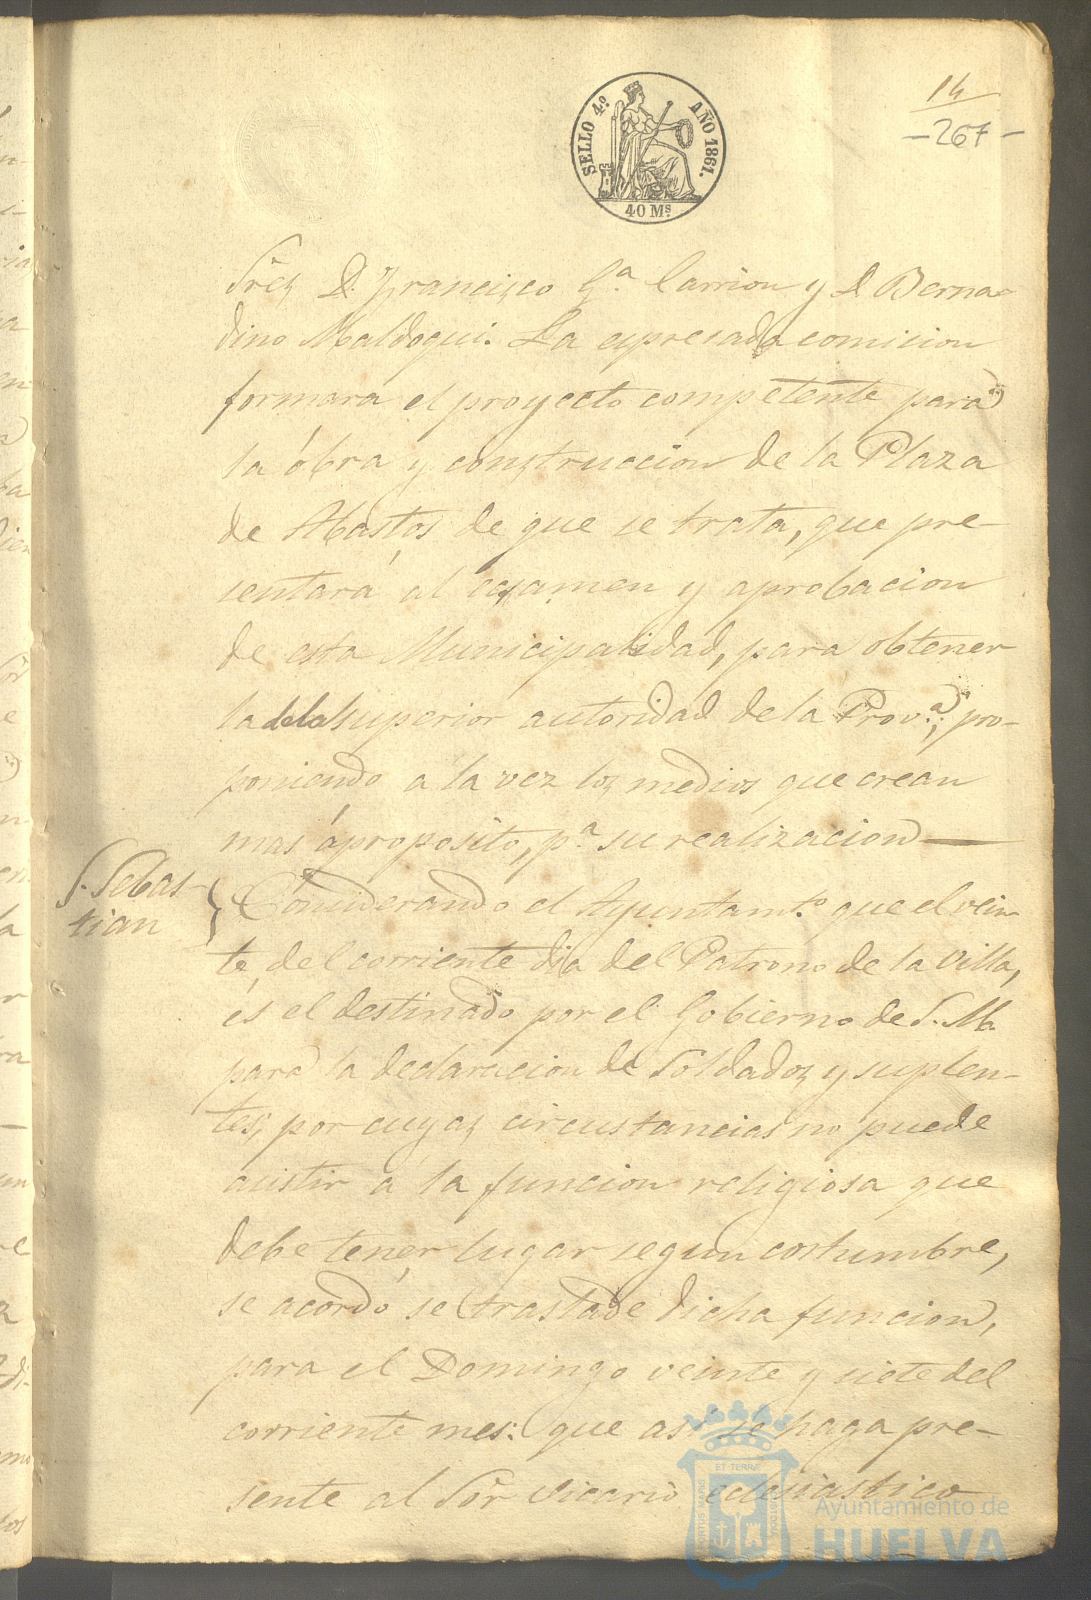 14
-267-
SELLO 4º AÑO 1861.
40 Ms.
Sres D. Francisco Ga. Carrion y D Berna-
dino Maldoqui. La expresada comision
formara el proyecto competente para
la óbra y construccion de la Plaza
de Abastos de que se trata, que pre-
sentará al ecsamen y aprobacion
de esta Municipalidad, para obtener
la de la superior autoridad de la Prova., pro-
poniendo a la vez los medios que crean
mas ápropósito, pa. su realizacion —
S. Sebas-
tian
Considerando el Ayuntamto. que el vein-
te, del corriente dia del Patrono de la Villa,
és el destinado por el Gobierno de S. M.
para la declaracion de Soldados y suplen-
tes, por cuyas circustancias no puede
asistir a la funcion religiosa que
debe tener lugar segun costumbre,
se acordó se traslade dicha funcion,
para el Domingo veinte y siete del
corriente mes: que asi se haga pre-
sente al Sor Vicario eclesiastico
Ayuntamiento de
HUELVA